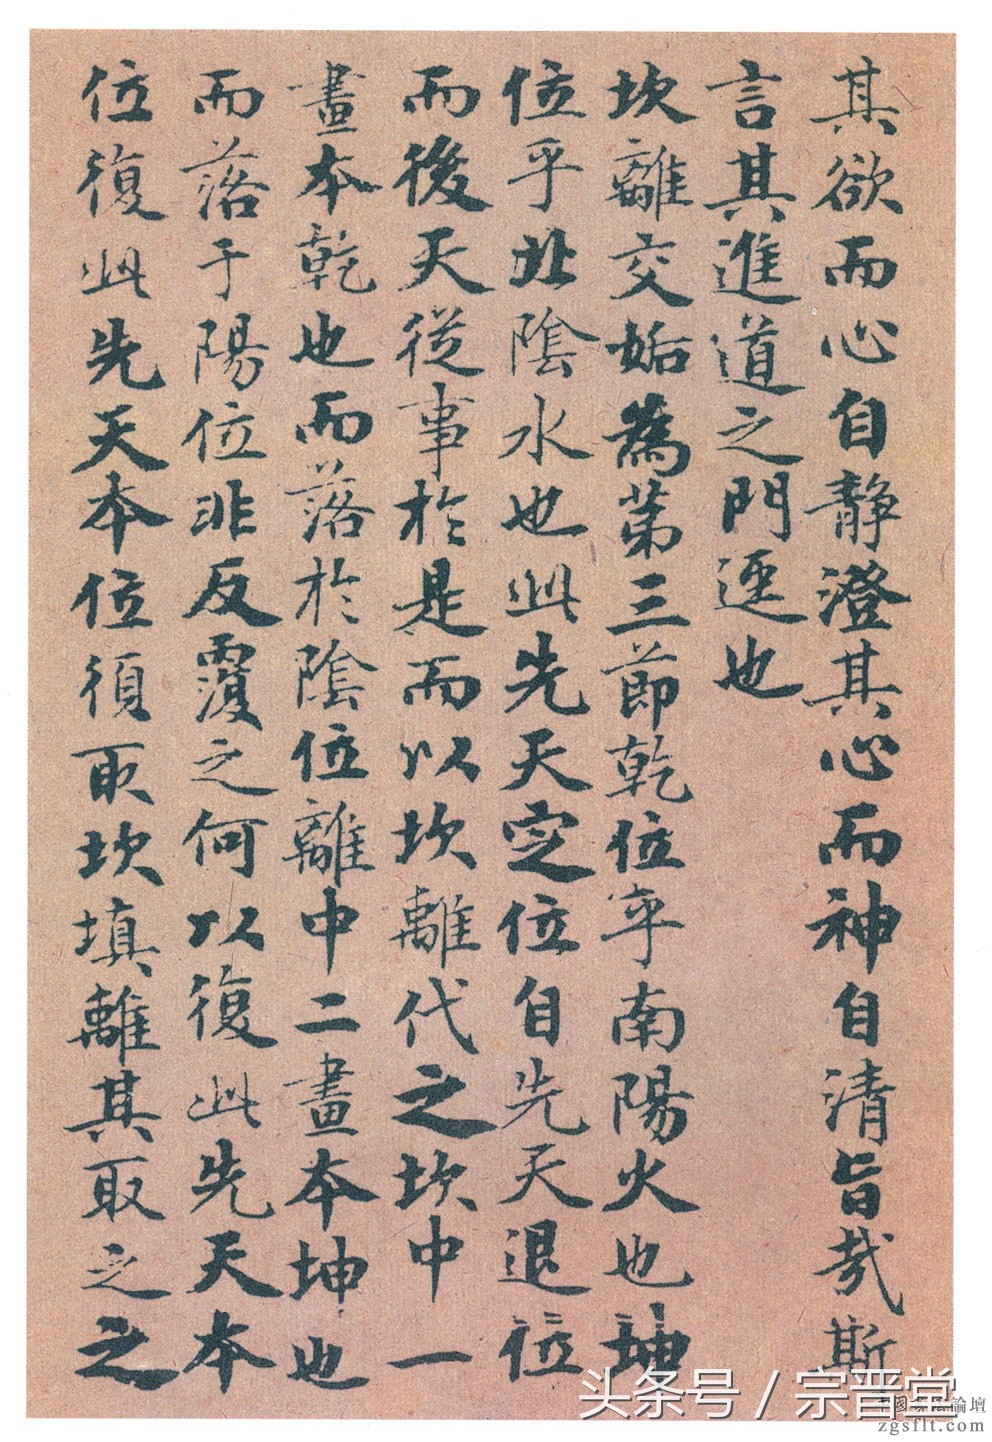 其欲而心自静澄其心而神自清旨哉斯
言其進道之門逕也
坎離交姤為第三節乾位乎南陽火也坤
位乎北陰水也此先天定位自先天退位
而後天從事於是而以坎離代之坎中一
畫本乾也而落於陰位離中二畫本坤也
而落于陽位非反覆之何以復此先天本
位復此先天本位須取坎填離其取之之
头条号 / 宗晋堂
中國書法論壇
zgsflt.com